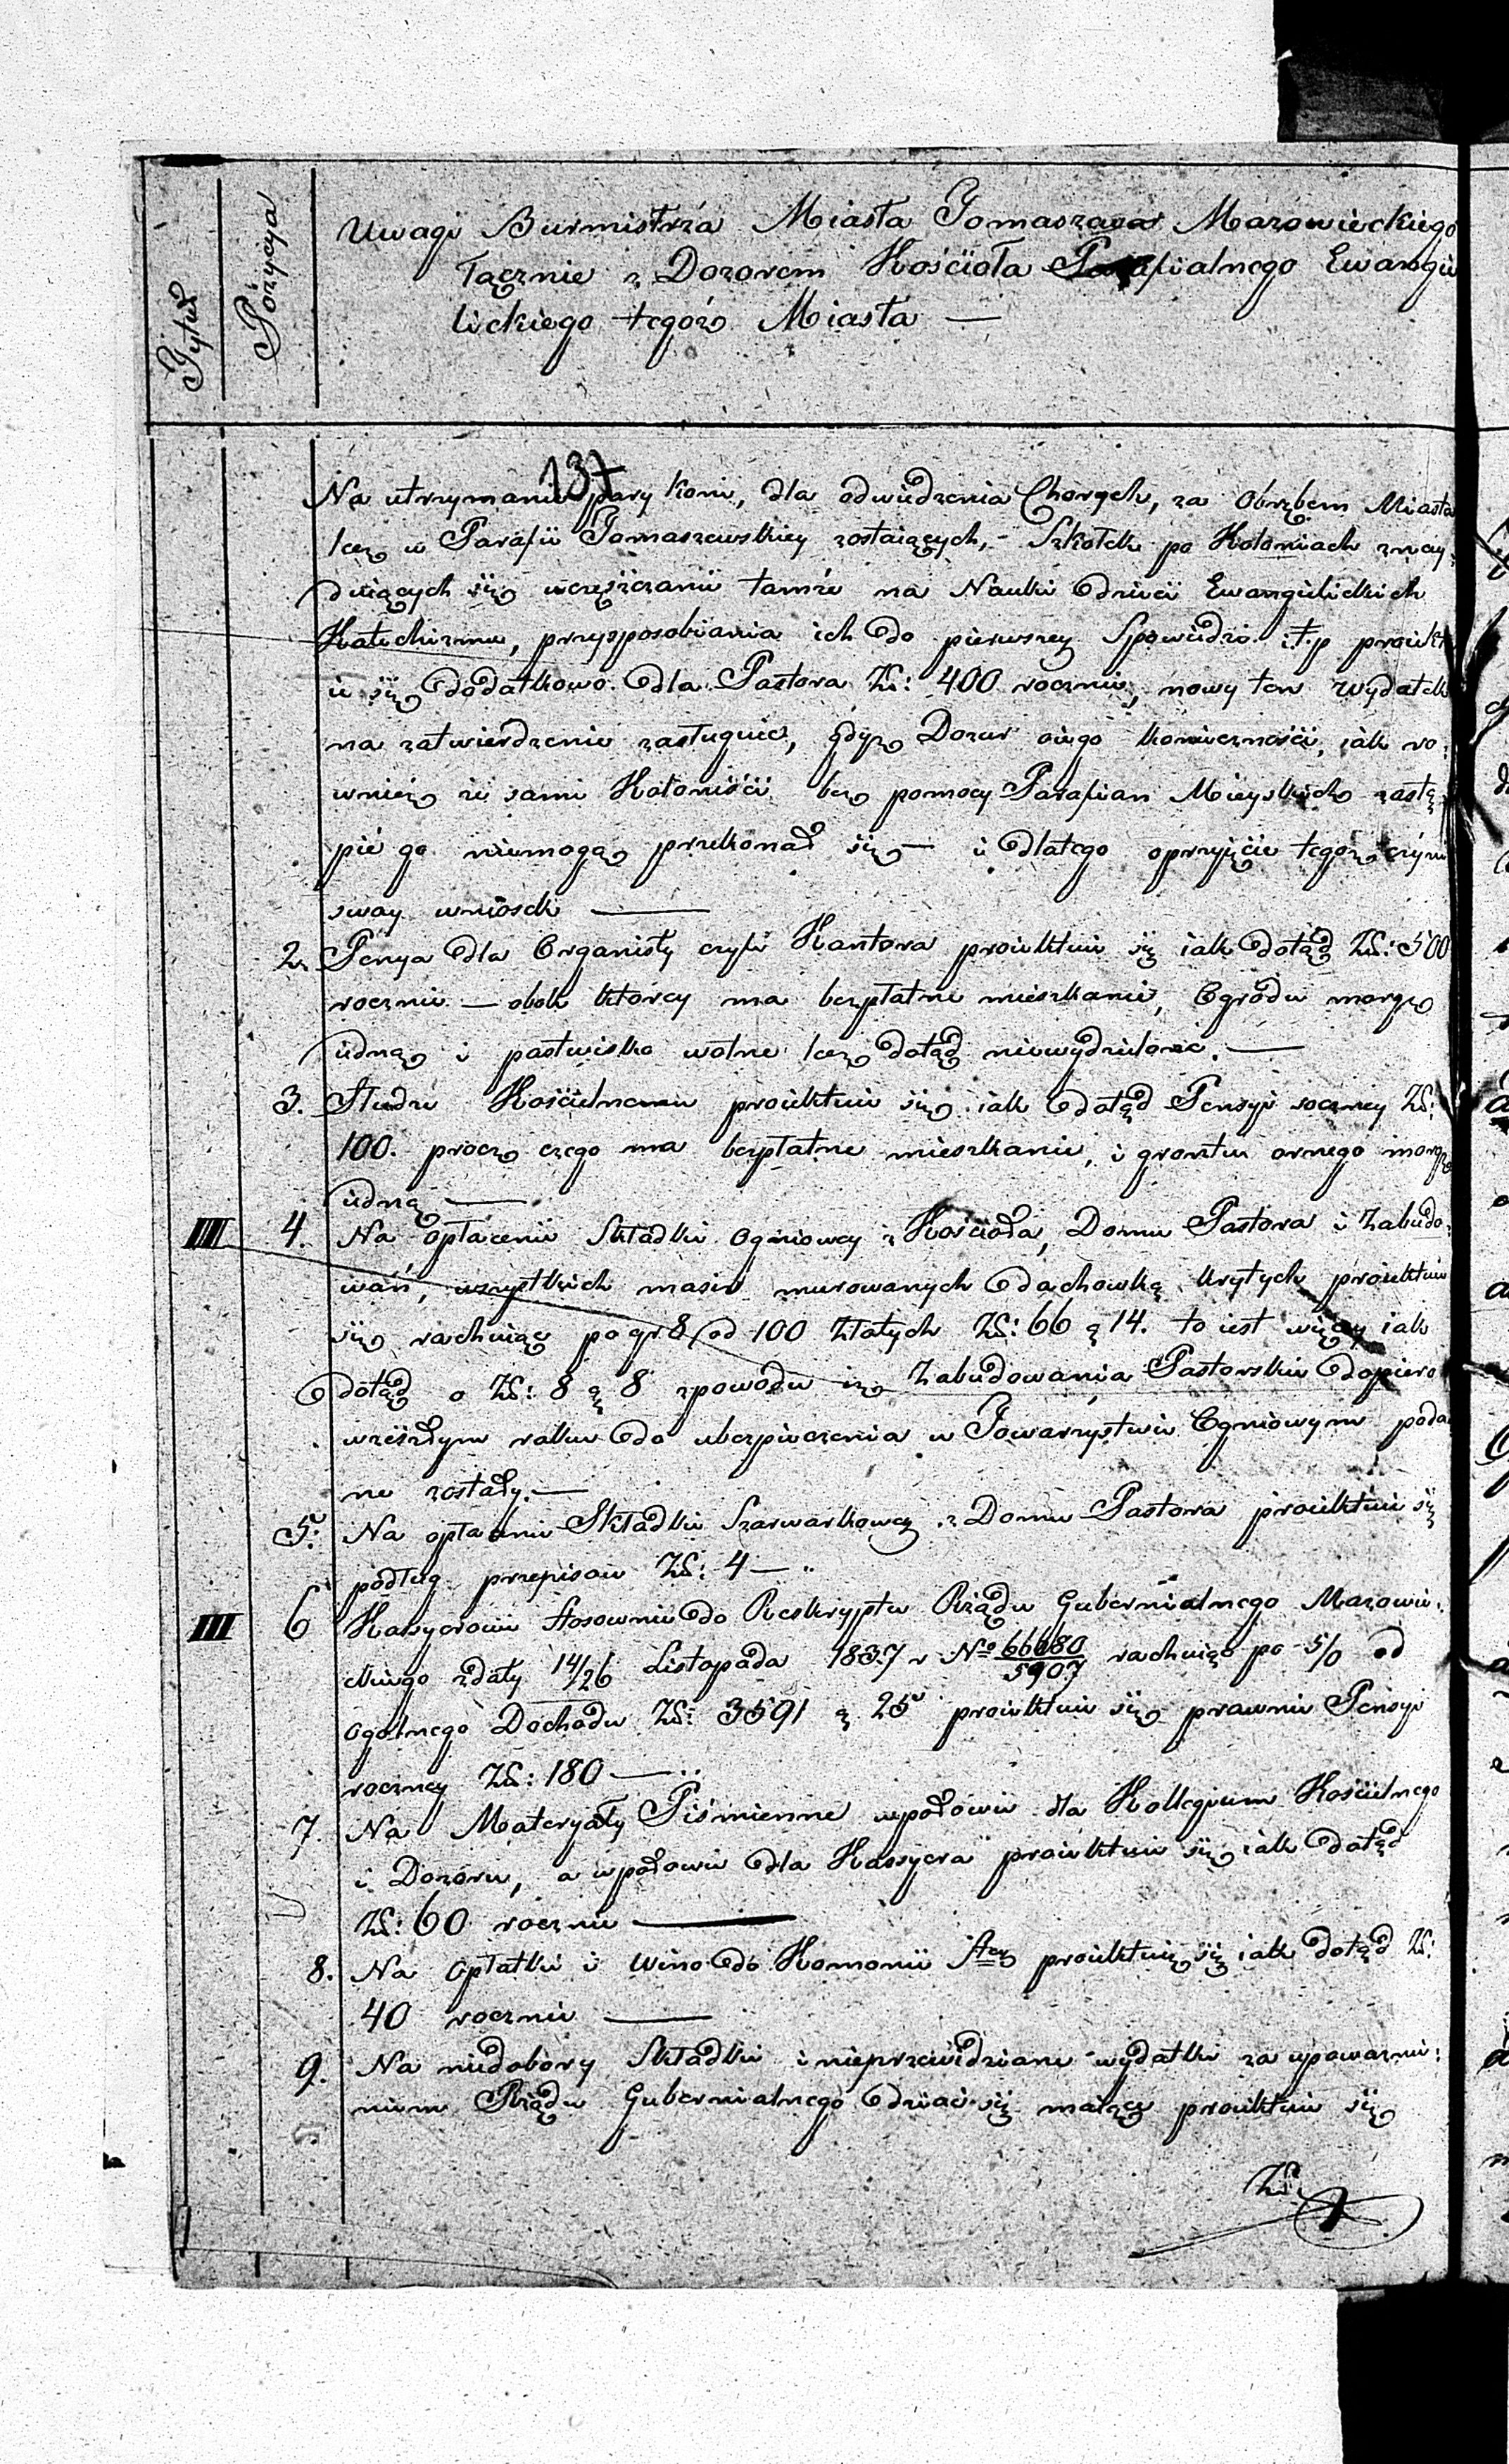 Tytuł
Pozycya
Uwagi Burmistrza Miasta Tomaszowa Mazowieckiego
łącznie z Dozorem Kościoła Parafialnego Ewangie
lickiego tegoż Miasta —
137
Na utrzymanie pary koni, dla odwiedzenia Chorych, za Obrębem Miasta
lecz w Parafii Tomaszewskiey zostaiących, - Szkółek po Koloniach znay:
duiących się uczęszczanie tamże na Nauki dzieci Ewangielickich
Katechizmu, przysposobiania ich do pierwszey Spowiedzi i.t.p proiekt
ie się dodatkowo dla Pastora Zł: 400 rocznie, nowy ten wydatek
na zatwierdzenie zasługuie, gdyż Dozur oiego konieczności, iak ro:
wnież że sami Koloniści bez pomocy Parafian Mieyskich zastą
pić go niemogą przekonał się — i dlatego oprzyięcie tegoż czyni
swoy wniosek —
2. Pensya dla Organisty czyli Kantora proiektuie się iak dotąd Zł: 500
rocznie — obok którey ma bezpłatne mieszkanie, Ogrodu morgę
iedną i pastwisko wolne lecz dotąd niewydzielone. —
3. Słudze Kościelnemu proiektuie się iak dotąd Pensyi roczney Zł:
100. procz czego ma bezpłatne mieszkanie, i gruntu ornego morgę
iedną —
III 4. Na opłacenie Składki Ogniowey z Kościoła, Domu Pastora i Zabudo:
wań, wszystkich masiv murowanych dachowką krytych proiektuie
się rachuiąc po gr 8 od 100 Złotych Zł: 66 g 14. to iest więcy iak
dotąd o Zł: 8 g 8 zpowodu iż Zabudowania Pastorskie dopiero
wzeszłym roku do ubezpieczenia w Towarzystwie Ogniowym poda
ne zostały. —
5. Na opłacenie Składki Szarwarkowey z Domu Pastora proiektuie się
podług przepisow Zł: 4 — "
III 6 Kassyerowi stosownie do Reskryptu Rządu Gubernialnego Mazowie:
ckiego zdaty 14/26 Listopada 1837 r No 66680/5907 rachuiąc po 5/0 od
ogolnego Dochodu Zł: 3591 g 25 proiektuie się prawnie Pensyi
roczney Zł: 180 — "
7. Na Materyały Piśmienne wpołowie dla Kollegium Kościelnego
i Dozoru, a wpołowie dla Kassyera proiektuie się iak dotąd
Zł: 60 rocznie —
8. Na Opłatki i Wino do Komonii Stey proiektuie się iak dotąd Zł:
40 rocznie —
9. Na niedobory Składki i nieprzewidziane wydatki za upoważnie:
niem Rządu Gubernialnego dziać się maiące proiektuie się
Zł: